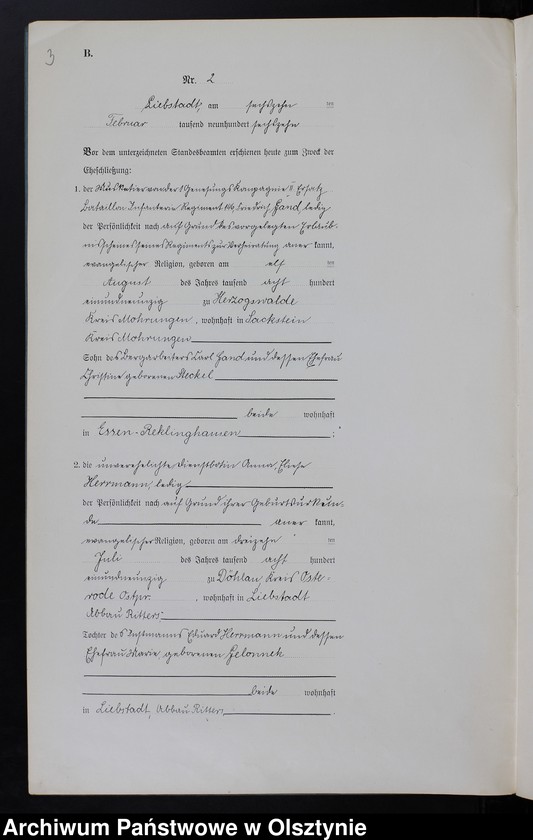 3
B.
Nr. 2
Liebstadt, am sechszehn ten
Februar tausend neunhundert sechszehn
Vor dem unterzeichneten Standesbeamten erschienen heute zum Zweck der
Eheschließung:
1. der Musketier von der 1 Genesungskompagnie II Ersatz
Bataillon Infanterie Regiment Friedrich Hand, ledig
der Persönlichkeit nach auf Grund des vorgelegten Erlaub-
nisscheines seines Regiments zur Verheiratung aner kannt,
evangelischer Religion, geboren am elf ten
August des Jahres tausend acht hundert
einundneunzig zu Herzogswalde
Kreis Mohrungen, wohnhaft in Sackstein
Kreis Mohrungen
Sohn des Bergarbeiters Karl Hand und dessen Ehefrau
Christine geborenen Steckel
beide wohnhaft
in Essen-Reklinghausen ;
2. die unverehelichte Dienstbotin Anna, Eliese
Herrmann, ledig
der Persönlichkeit nach auf Grund ihrer Geburtsurkun-
de aner kannt,
evangelischer Religion, geboren am dreizehn ten
Juli des Jahres tausend acht hundert
einundneunzig zu Döhlau, Kreis Oste-
rode Ostpr. , wohnhaft in Liebstadt
Abbau Ritters
Tochter des Instmanns Eduard Herrmann und dessen
Ehefrau Marie, geborenen Jelonnek
beide wohnhaft
in Liebstadt, Abbau Ritters .
Archiwum Państwowe w Olsztynie